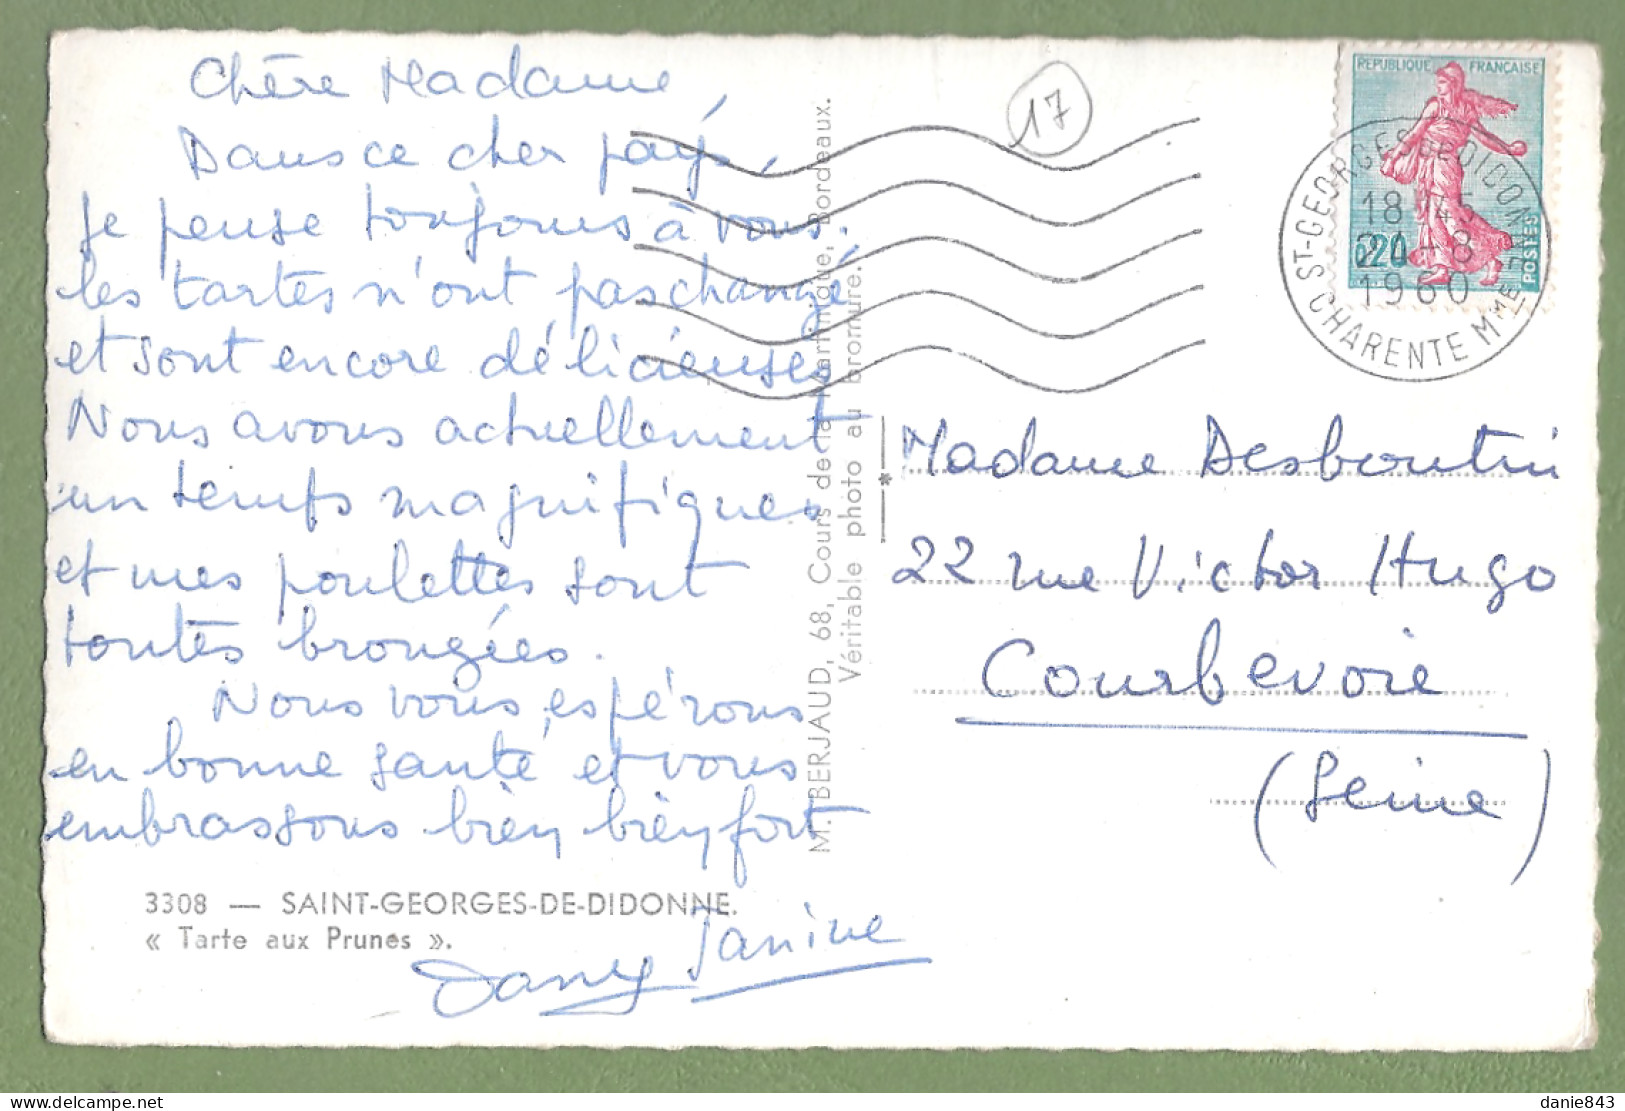 Chère Madame,
Dans ce cher pays,
je pense toujours à vous.
les tartes n'ont pas changé
et sont encore délicieuses
Nous avons actuellement
un temps magnifiques
et mes poulettes sont
toutes bronzées.
Nous vous espérons
en bonne santé et vous
embrassons bien bien fort
3308 — SAINT-GEORGES-DE-DIDONNE.
« Tarte aux Prunes ».
Janine
Dany
M. BERJAUD, 68, Cours de la Martinique, Bordeaux.
Véritable photo au bromure.
17
REPUBLIQUE FRANÇAISE
0,20
POSTES
ST-GEORGES DE DIDONNE
18H45
8
1960
CHARENTE MME
Madame Desboutin
22 rue Victor Hugo
Courbevoie
(Seine)
danie843